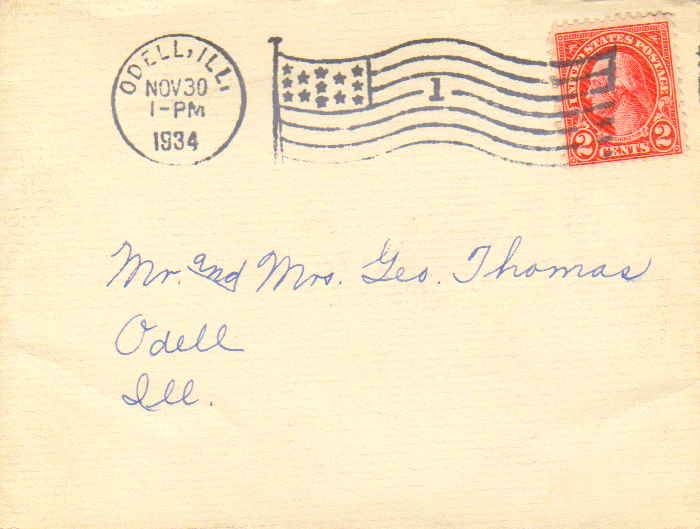 ODELL, ILL.
NOV 30
1-PM
1934
1
UNITED STATES POSTAGE
2 CENTS 2
Mr. and Mrs. Geo. Thomas
Odell
Ill.